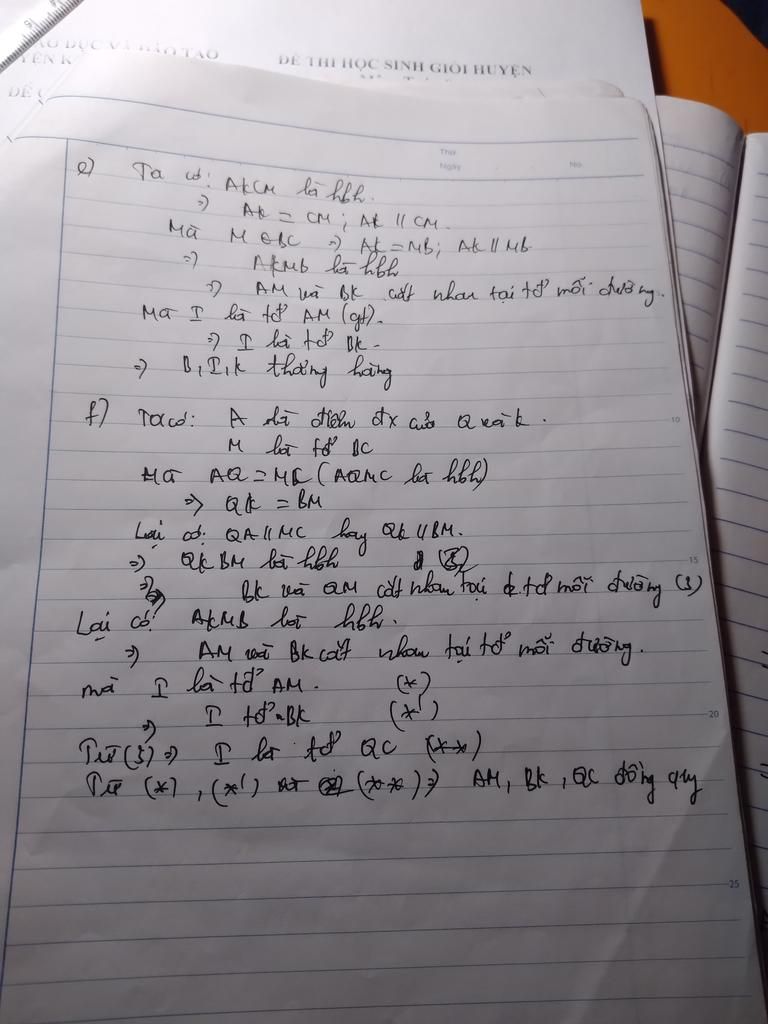 ĐỀ THI HỌC SINH GIỎI HUYỆN
Thứ
Ngày
No.
e) Ta có: AKCM là hbh.
=> AK = CM ; AK // CM.
Mà M ∈ BC => AK = MB; AK // MB
=> AKMB là hbh
=> AM và BK cắt nhau tại tđ mỗi đường.
Mà I là tđ AM (gt).
=> I là tđ BK.
=> B, I, K thẳng hàng
f) Ta có: A là điểm đx của Q và K.
10
M là tđ BC
Mà AQ = MC (AQMC là hbh)
=> QK = BM
Lại có: QA // MC hay QK // BM.
=> QKBM là hbh
15
=> BK và QM cắt nhau tại tđ mỗi đường (3)
Lại có: AKMB là hbh.
=> AM và BK cắt nhau tại tđ mỗi đường.
mà I là tđ AM. (*)
=> I tđ BK (*')
20
Từ (3) => I là tđ QC (**)
Từ (*), (*') (**) => AM, BK, QC đồng quy
25